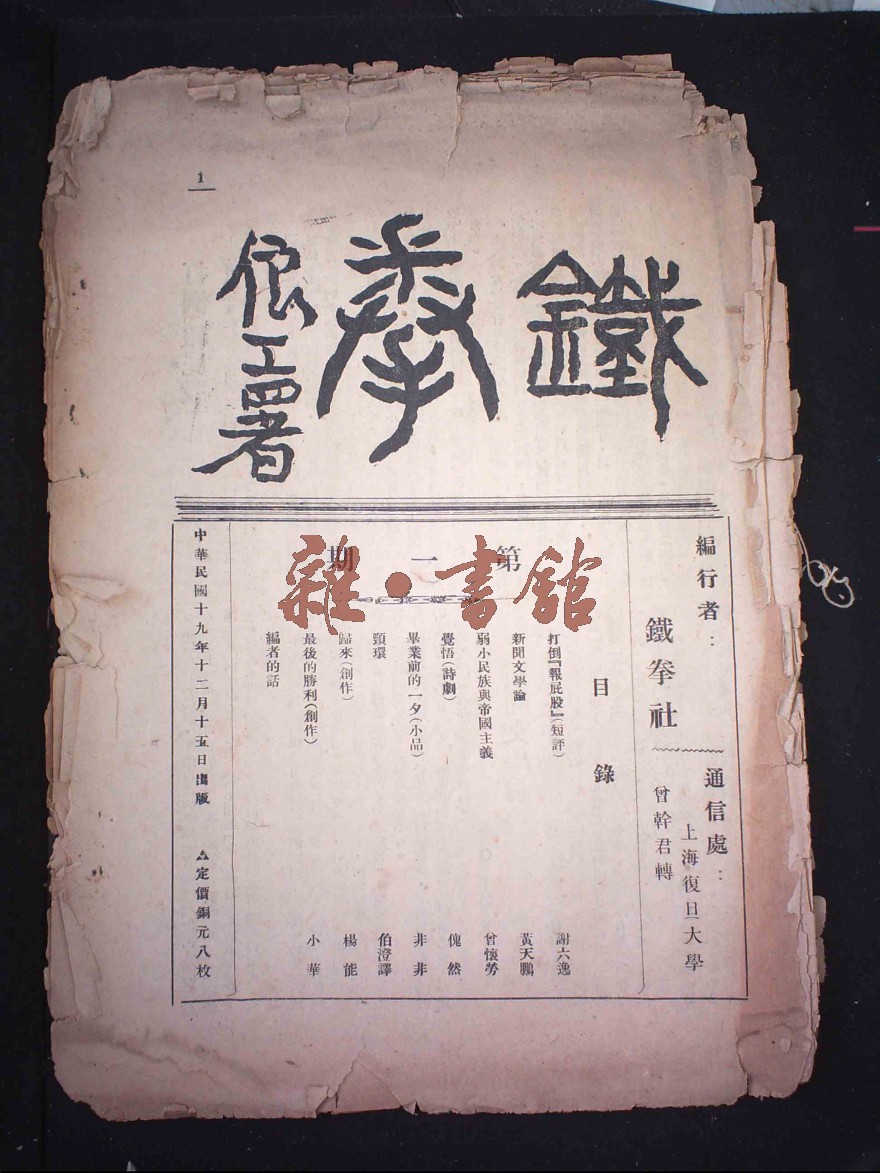 1
鐵拳
俍工署
編行者：
鐵拳社
通信處：
上海復旦大學
曾幹君轉
第一期
雜·書館
目錄
打倒『報屁股』(短評) 謝六逸
新聞文學論 黃天鵬
弱小民族與帝國主義 曾懷勞
覺悟(詩劇) 傀然
畢業前的一夕(小品) 非非
頸環 伯澄譯
歸來(創作) 楊能
最後的勝利(創作) 小華
編者的話
中華民國十九年十二月十五日出版 定價銅元八枚